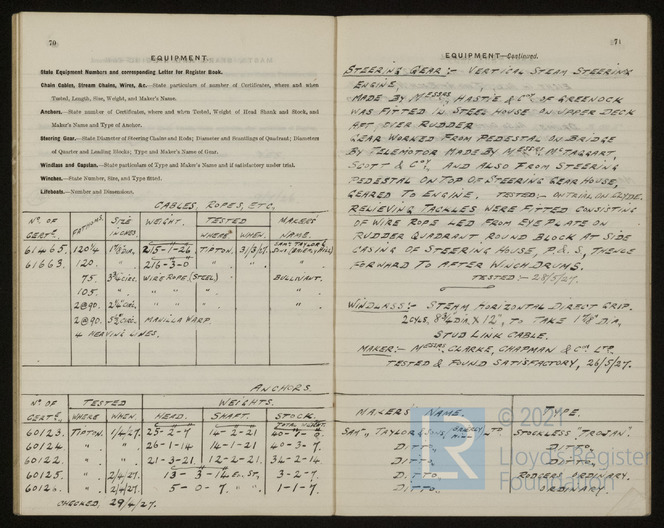 70
EQUIPMENT.
State Equipment Numbers and corresponding Letter for Register Book.
Chain Cables, Stream Chains, Wires, &c.—State particulars of number of Certificates, where and when
Tested, Length, Size, Weight, and Maker's Name.
Anchors.—State number of Certificates, where and when Tested, Weight of Head Shank and Stock, and
Maker's Name and Type of Anchor.
Steering Gear.—State Diameter of Steering Chains and Rods; Diameter and Soundings of Quadrant; Diameters
of Quarter and Leading Blocks; Type and Maker's Name of Gear.
Windlass and Capstan.—State particulars of Type and Maker's Name and if satisfactory under trial.
Winches.—State Number, Size, and Type fitted.
Lifeboats.—Number and Dimensions.
CABLES, ROPES, ETC.
No. OF CERTe. FATHOMS. SIZE INCHES. WEIGHT. TESTED WHERE WHEN. MAKERS NAME.
61465. 120 215-1-26 TIPTON. SAMl. TAYLOR &
61663. 120. " 216-3-0 " "
75 WIRE ROPE. (STEEL) BULLIVANT.
105. " " " "
2@90. " " "
2@90. MANILLA WARP.
4 HEAVING LINES.
ANCHORS.
No. OF CERTe. TESTED WHERE WHEN. WEIGHTS. HEAD. SHAFT. STOCK.
TOTAL WEIGHT.
60123. TIPTON. 1/4/27. 25-2-7 14-2-21
60124. " " 26-1-14 14-1-21 40-3-7.
60122. " " 21-3-21 12-2-21. 34-2-14
60125. " 2/4/27. 13-3-14 3-2-7.
" 2/4/27. 5-0-7. " " 1-1-7.
CHECKED. 29/4/27.
71
EQUIPMENT—Continued.
STEERING GEAR:- VERTICAL STEAM STEERING
ENGINE.
MADE BY MESSRS. HASTIE & Co OF GREENOCK
WAS FITTED IN STEEL HOUSE ON UPPER DECK
AFT OVER RUDDER
GEAR WORKED FROM PEDESTAL ON BRIDGE
BY TELEMOTOR MADE BY MESSRS McTAGGART,
SCOTT & Coy. AND ALSO FROM STEERING
PEDESTAL ON TOP OF STEERING GEAR HOUSE,
GEARED TO ENGINE. TESTED:- ON TRIAL ON CLYDE.
RELIEVING TACKLES WERE FITTED CONSISTING
OF WIRE ROPE LED FROM EYE PLATE ON
RUDDER QUADRANT ROUND BLOCK AT SIDE
CASING OF STEERING HOUSE, P. & S., THENCE
FORWARD TO AFTER WINCH DRUMS.
TESTED:- 28/5/27.
WINDLASS:- STEAM, HORIZONTAL DIRECT GRIP.
2 CYLS. 8¾ DIA. X 12", TO TAKE 1⅞ DIA,
STUD LINK CABLE.
MAKER:- MESSRS. CLARKE, CHAPMAN & Co LTD.
TESTED & FOUND SATISFACTORY, 26/5/27.
MAKERS NAME. TYPE.
SAMl, TAYLOR & SONS, LTD STOCKLESS "TROJAN".
DITTO. DITTO.
DITTO. DITTO.
DITTO. RODGERS ORDINARY.
DITTO. ORDINARY.
© 2021
Lloyd's Register
Foundation